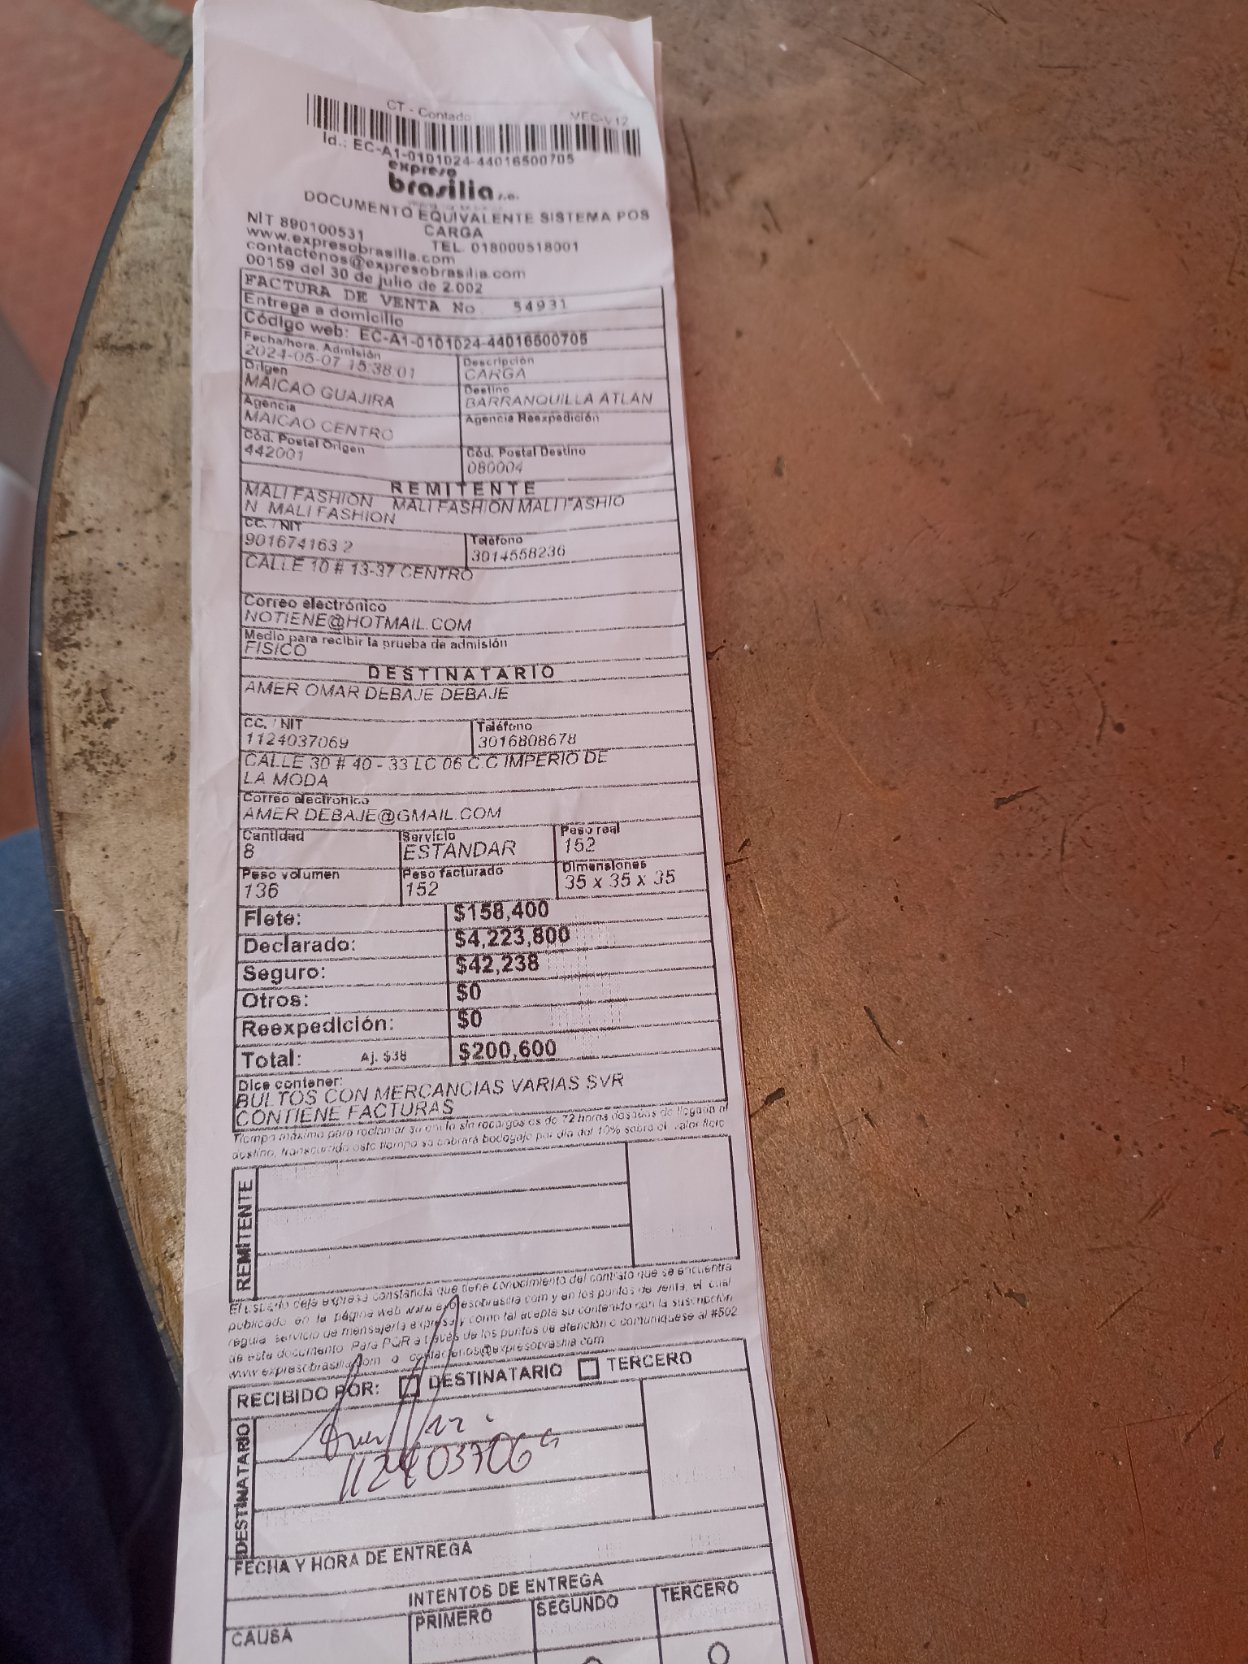 CT - Contado VEC-V12
Id.: EC-A1-0101024-44016500705
expreso
brasilia s.a.
DOCUMENTO EQUIVALENTE SISTEMA POS
NIT 890100531 CARGA
www.expresobrasilia.com TEL. 018000518001
contactenos@expresobrasilia.com
00159 del 30 de julio de 2.002
FACTURA DE VENTA No 54931
Entrega a domicilio
Código web: EC-A1-0101024-44016500705
Fecha/hora. Admisión Descripción
2024-05-07 15:38:01 CARGA
Origen Destino
MAICAO GUAJIRA BARRANQUILLA ATLAN
Agencia Agencia Reexpedición
MAICAO CENTRO
Cód. Postal Origen Cód. Postal Destino
442001 080004
REMITENTE
MALI FASHION MALI FASHION MALI FASHIO
N MALI FASHION
CC. / NIT Teléfono
901674163 2 3014558236
CALLE 10 # 13-37 CENTRO
Correo electrónico
NOTIENE@HOTMAIL.COM
Medio para recibir la prueba de admisión
FISICO
DESTINATARIO
AMER OMAR DEBAJE DEBAJE
CC. / NIT Teléfono
1124037069 3016808678
CALLE 30 # 40 - 33 LC 06 C.C IMPERIO DE
LA MODA
Correo electronico
AMER.DEBAJE@GMAIL.COM
Cantidad Servicio Peso real
8 ESTANDAR 152
Peso volumen Peso facturado Dimensiones
136 152 35 x 35 x 35
Flete: $158,400
Declarado: $4,223,800
Seguro: $42,238
Otros: $0
Reexpedición: $0
Total: Aj. $38 $200,600
Dice contener:
BULTOS CON MERCANCIAS VARIAS SVR
CONTIENE FACTURAS
Tiempo máximo para reclamar su envío sin recargos es de 72 horas después de llegada al
destino, transcurrido este tiempo se cobrará bodegaje por día del 10% sobre el valor flete
REMITENTE
El usuario deja expresa constancia que tiene conocimiento del contrato que se encuentra
publicado en la página web www.expresobrasilia.com y en los puntos de venta, el cual
regula servicio de mensajería expresa y como tal acepta su contenido con la suscripción
de este documento. Para PQR a través de los puntos de atención o comuníquese al #502
www.expresobrasilia.com o contactenos@expresobrasilia.com
RECIBIDO POR: DESTINATARIO TERCERO
DESTINATARIO
1124037069
FECHA Y HORA DE ENTREGA
INTENTOS DE ENTREGA
CAUSA PRIMERO SEGUNDO TERCERO